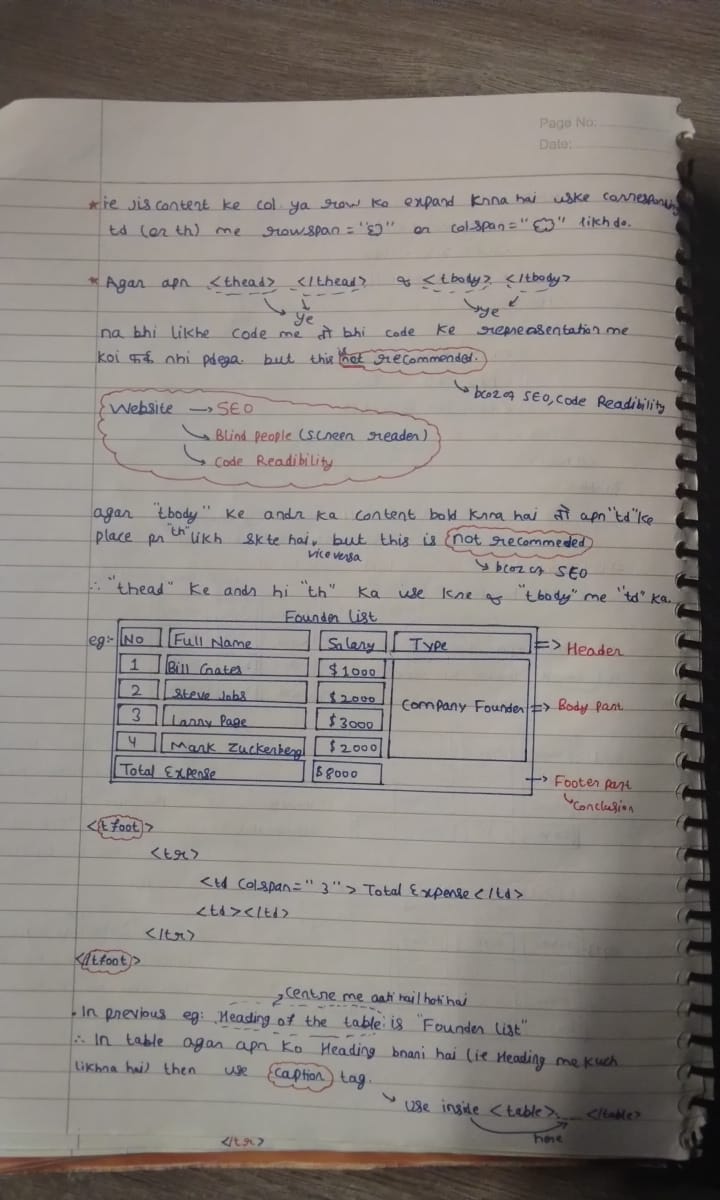 Page No:
Date:
* ie jis content ke col ya row ko expand krna hai uske corresponding
td (or th) me rowspan = "{}" or colspan = "{}" likh do.
* Agar apn <thead> </thead> & <tbody> </tbody>
ye ye
na bhi likhe code me तो bhi code ke represasentation me
koi फर्क nhi pdega. but this is not recommended.
bcoz of SEO, Code Readibility
Website → SEO
Blind people (screen reader)
Code Readibility
agar "tbody" ke andr ka content bold krna hai तो apn "td" ke
place pr "th" likh skte hai, but this is not recommeded
vice versa
bcoz of SEO
∴ "thead" ke andr hi "th" ka use kre & "tbody" me "td" ka.
Founder List
eg:- No Full Name Salary Type => Header
1 Bill Gates $1000
2 Steve Jobs $2000 Company Founder => Body part
3 Larry Page $3000
4 Mark Zuckerberg $2000
Total Expense $8000 → Footer part
Conclusion
<tfoot>
<tr>
<td colspan=" 3"> Total Expense </td>
<td></td>
</tr>
</tfoot>
Centre me aati hai/hoti hai
· In previous eg: Heading of the table is "Founder List"
∴ In table agar apn ko Heading bnani hai (ie Heading me kuch
likhna hai) then use caption tag.
use inside <table> </table>
here
</tr>